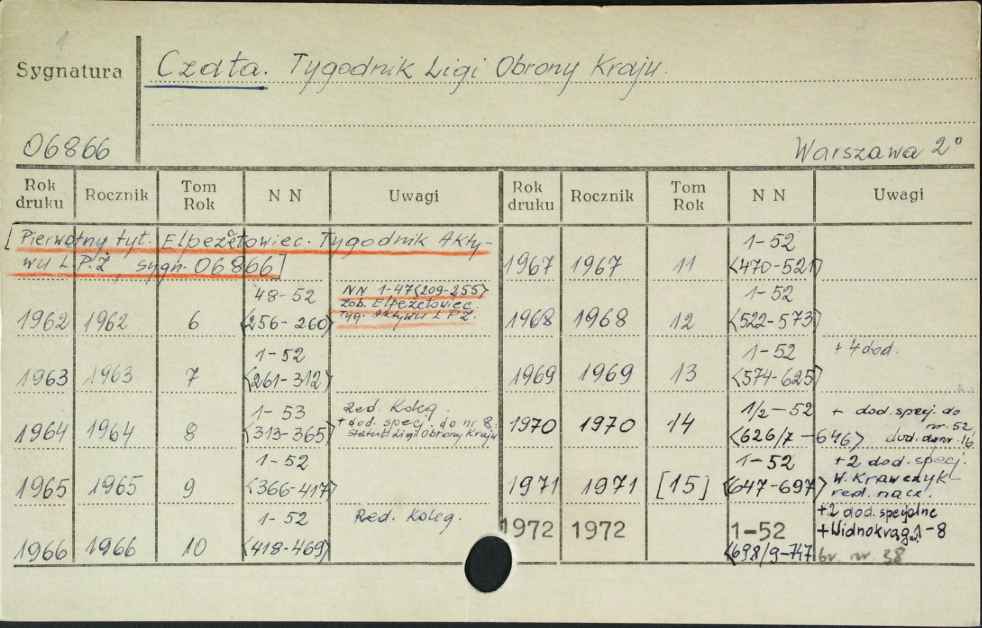 1
Sygnatura
Czata. Tygodnik Ligi Obrony Kraju.
06866
Warszawa 2°
Rok druku Rocznik Tom Rok N N Uwagi Rok druku Rocznik Tom Rok N N Uwagi
[Pierwotny tyt. Elpeżetowiec. Tygodnik Akty-
wu L.P.Ż., sygn. 06866]
1962 1962 6 48-52 <256-260> NN 1-47<209-255> zob. Elpeżetowiec. Tyg. Aktywu L.P.Ż.
1963 1963 7 1-52 <261-312>
1964 1964 8 1-53 <313-365> Red. Koleg. + dod. specj. do nr 8. Statut Ligi Obrony Kraju
1965 1965 9 1-52 <366-417>
1966 1966 10 1-52 <418-469> Red. Koleg.
1967 1967 11 1-52 <470-521>
1968 1968 12 1-52 <522-573>
1969 1969 13 1-52 <574-625> + 4 dod.
1970 1970 14 1/2-52 <626/7-646> + dod. specj. do nr. 52 dod. do nr. 16
1971 1971 [15] 1-52 <647-697> +2 dod. specj. W. Krawczyk red. nacz.
1972 1972 1-52 <698/9-747> +2 dod specjalne +Widnokrąg 1-8 br. nr. 38